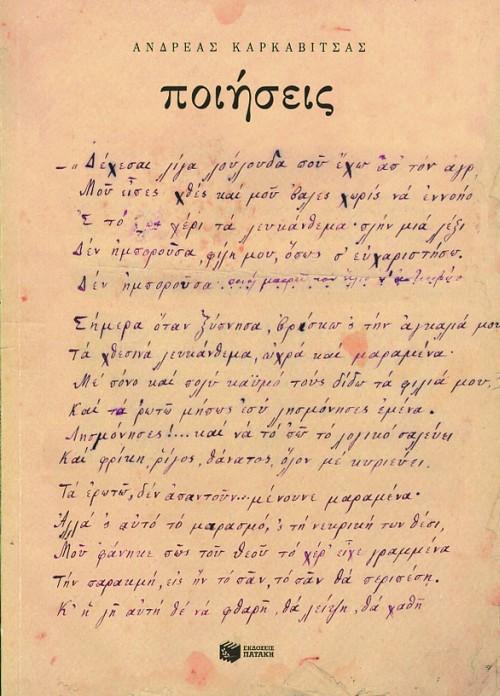 ΑΝΔΡΕΑΣ ΚΑΡΚΑΒΙΤΣΑΣ
ποιήσεις
—„Δέχεσαι λίγα λούλουδα ποῦ ἔχω ἀπ' τὸν ἀγρ
Μοῦ εἶπες χθὲς καὶ μοῦ βαλες χωρὶς νὰ ἐννοηθῶ
Σ τὸ χέρι τὰ λευκάνθεμα· πλὴν μιὰ λέξι
Δὲν ἠμποροῦσα, φίλη μου, ὅπως σ' εὐχαριστήσω.
Δὲν ἠμποροῦσα
Σήμερα ὅταν ξύπνησα, βρίσκω 'ς τὴν ἀγκαλιά μου
Τὰ χθεσινὰ λευκάνθεμα, ὠχρὰ καὶ μαραμένα·
Μὲ πόνο καὶ πολὺ καϋμὸ τοὺς δίδω τὰ φιλιά μου,
Καὶ τὰ ρωτῶ μήπως ἐσὺ λησμόνησες ἐμένα.
Λησμόνησες!... καὶ νὰ τὸ πῶ τὸ λογικό σαλεύει
Καὶ φρίκη, ῥῖγος, θάνατος, ὅλον μὲ κυριεύει.
Τὰ ἐρωτῶ, δὲν ἀπαντοῦν... μένουνε μαραμένα·
Ἀλλὰ 'ς αὐτὸ τὸ μαρασμό, 'ς τὴ νεκρική των θέσι,
Μοῦ φάνηκε πῶς τοῦ Θεοῦ τὸ χέρ' εἶχε γραμμένα
Τὴν παρακμή, εἰς ἣν τὸ πᾶν, τὸ πᾶν θὰ περιπέση.
Κ' ἡ γῆ αὐτὴ θὲ νὰ φθαρῇ, θὰ λείψη, θὰ χαθῇ
ΕΚΔΟΣΕΙΣ
ΠΑΤΑΚΗ